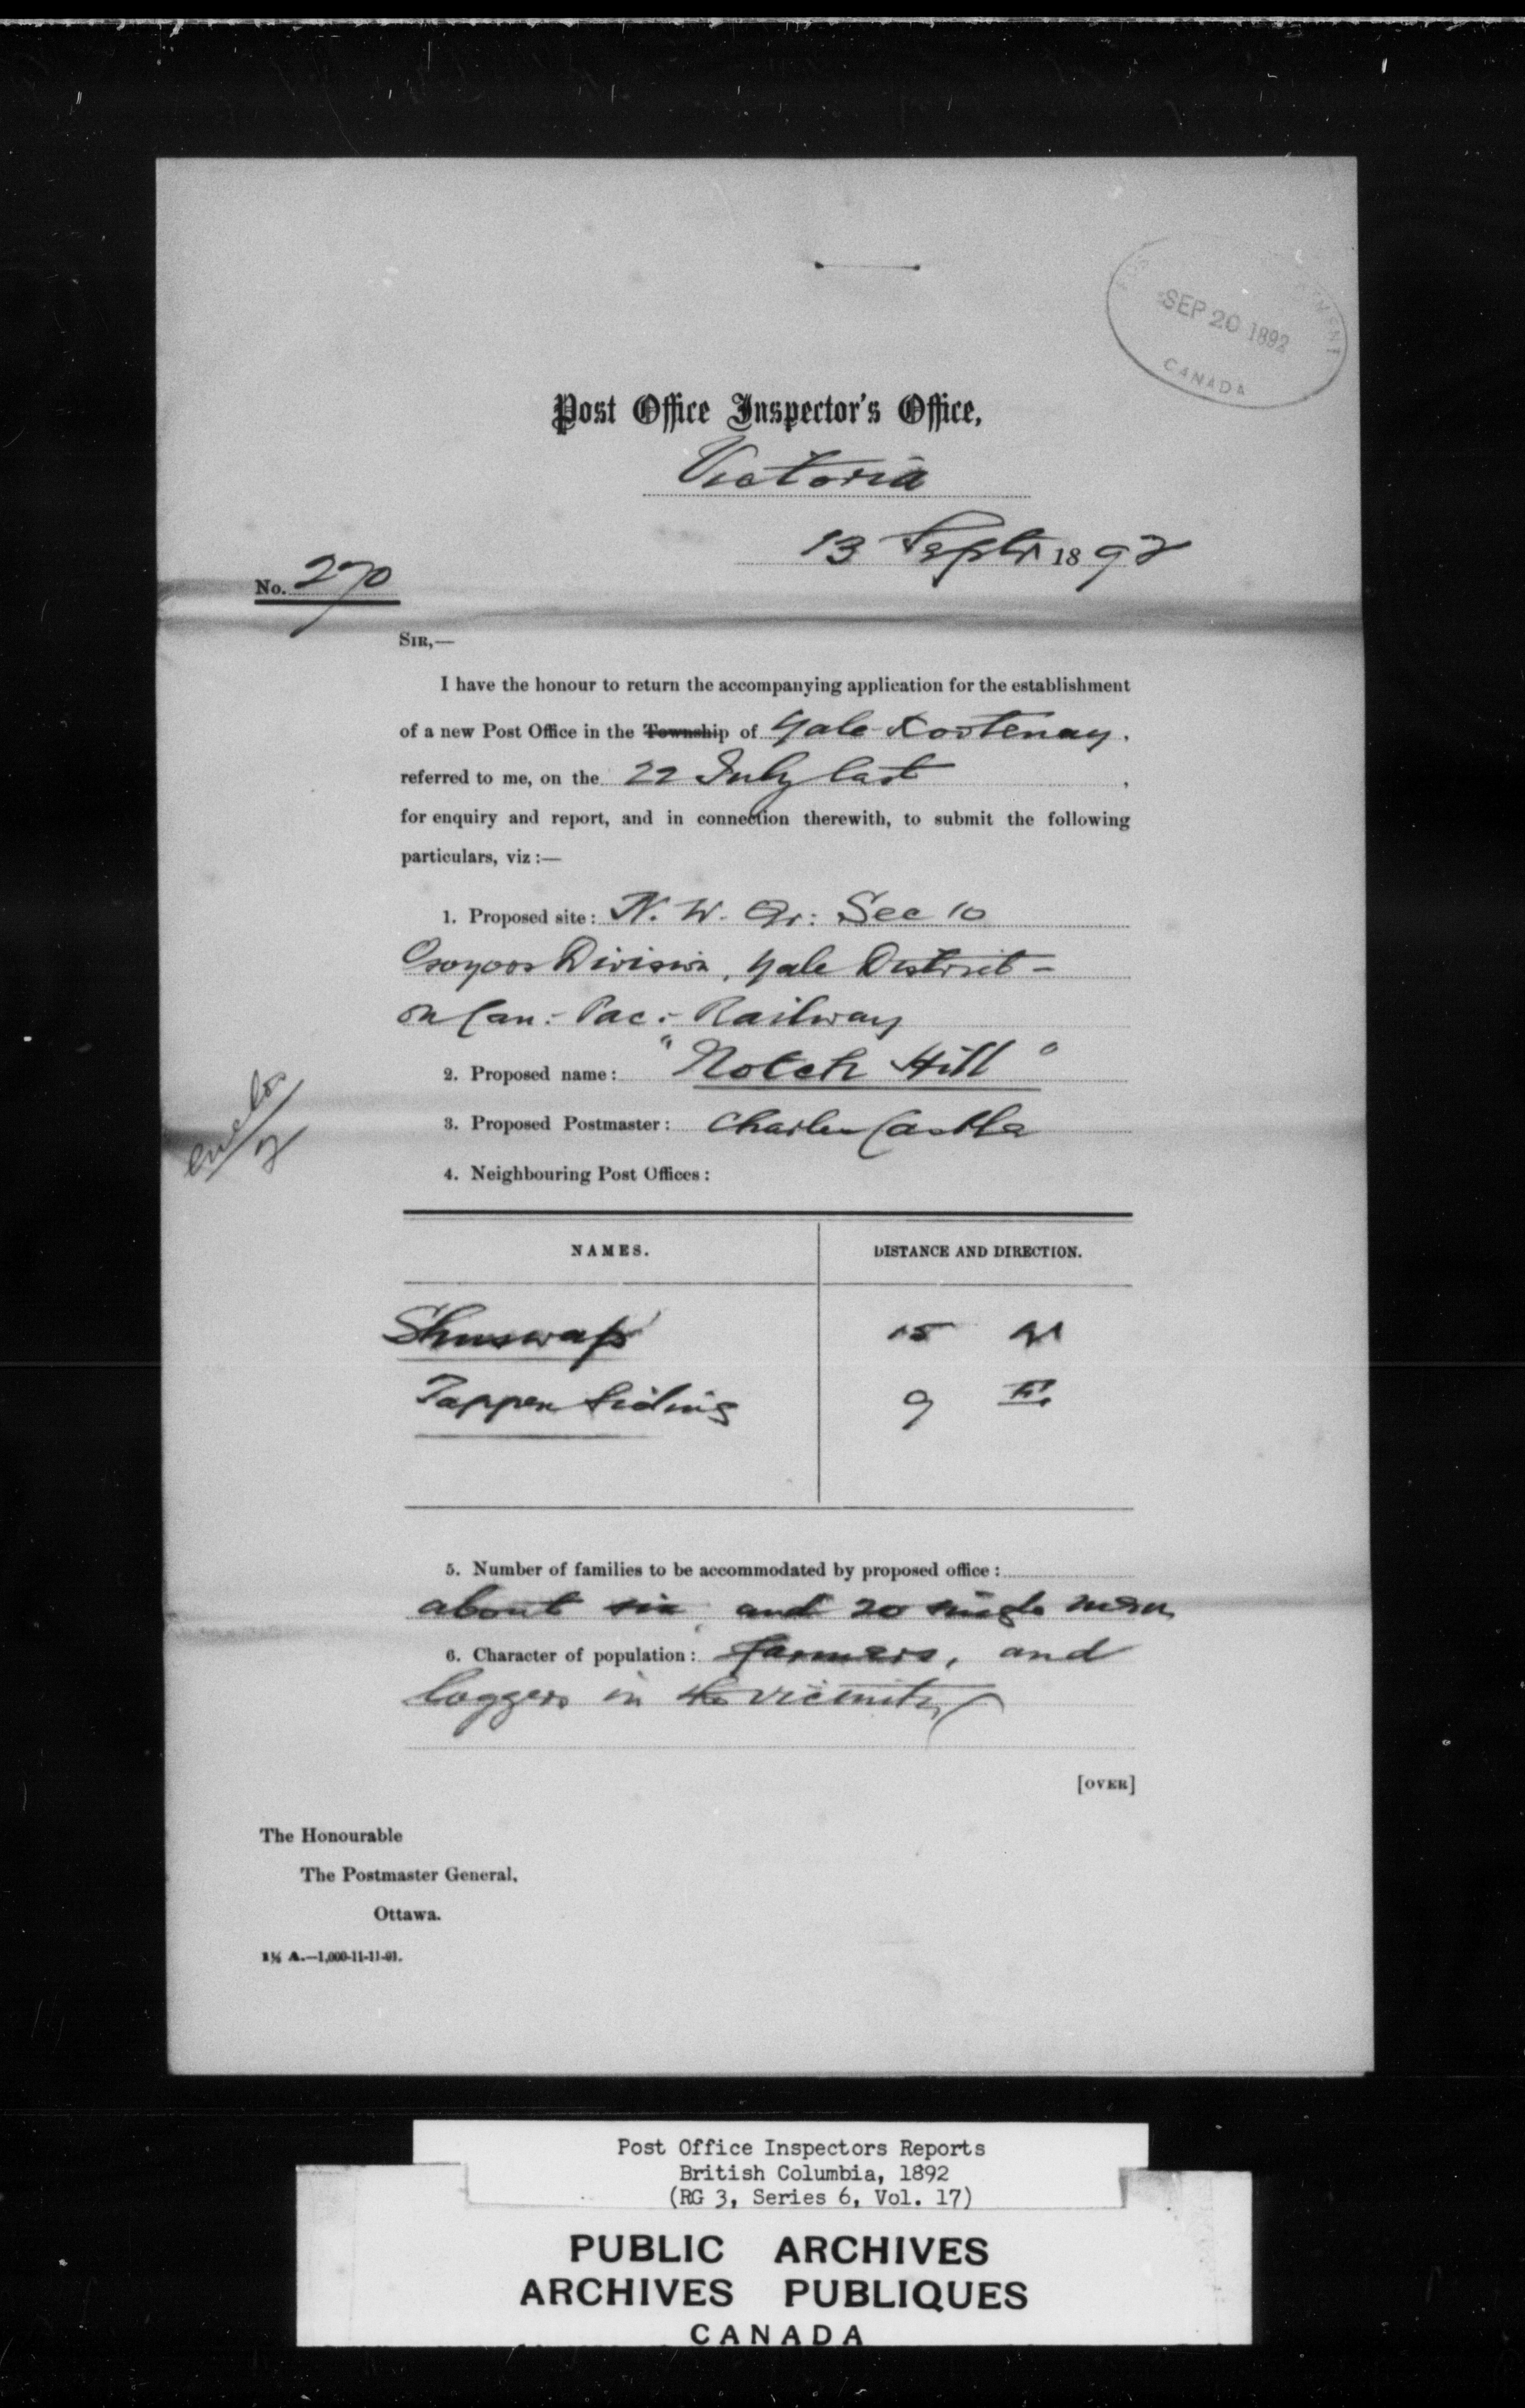 SEP 20 1892
CANADA
Post Office Inspector's Office,
Victoria
13 Septr 1892
No. 270
SIR,—
I have the honour to return the accompanying application for the establishment
of a new Post Office in the Township of Yale-Kootenay.
referred to me, on the 22 July last,
for enquiry and report, and in connection therewith, to submit the following
particulars, viz :—
1. Proposed site: N. W. Qr: Sec 10
Osoyoos Division, Yale District -
on Can: Pac: Railway
2. Proposed name: "Notch Hill"
3. Proposed Postmaster: Charles Castle
4. Neighbouring Post Offices:
NAMES. DISTANCE AND DIRECTION.
Shuswap 15
Tappen Siding 9 E.
5. Number of families to be accommodated by proposed office:
about six, and 20 single men
6. Character of population: farmers, and
loggers in the vicinity
[OVER]
The Honourable
The Postmaster General,
Ottawa.
1½ A.—1,000-11-11-91.
Post Office Inspectors Reports
British Columbia, 1892
(RG 3, Series 6, Vol. 17)
PUBLIC ARCHIVES
ARCHIVES PUBLIQUES
CANADA